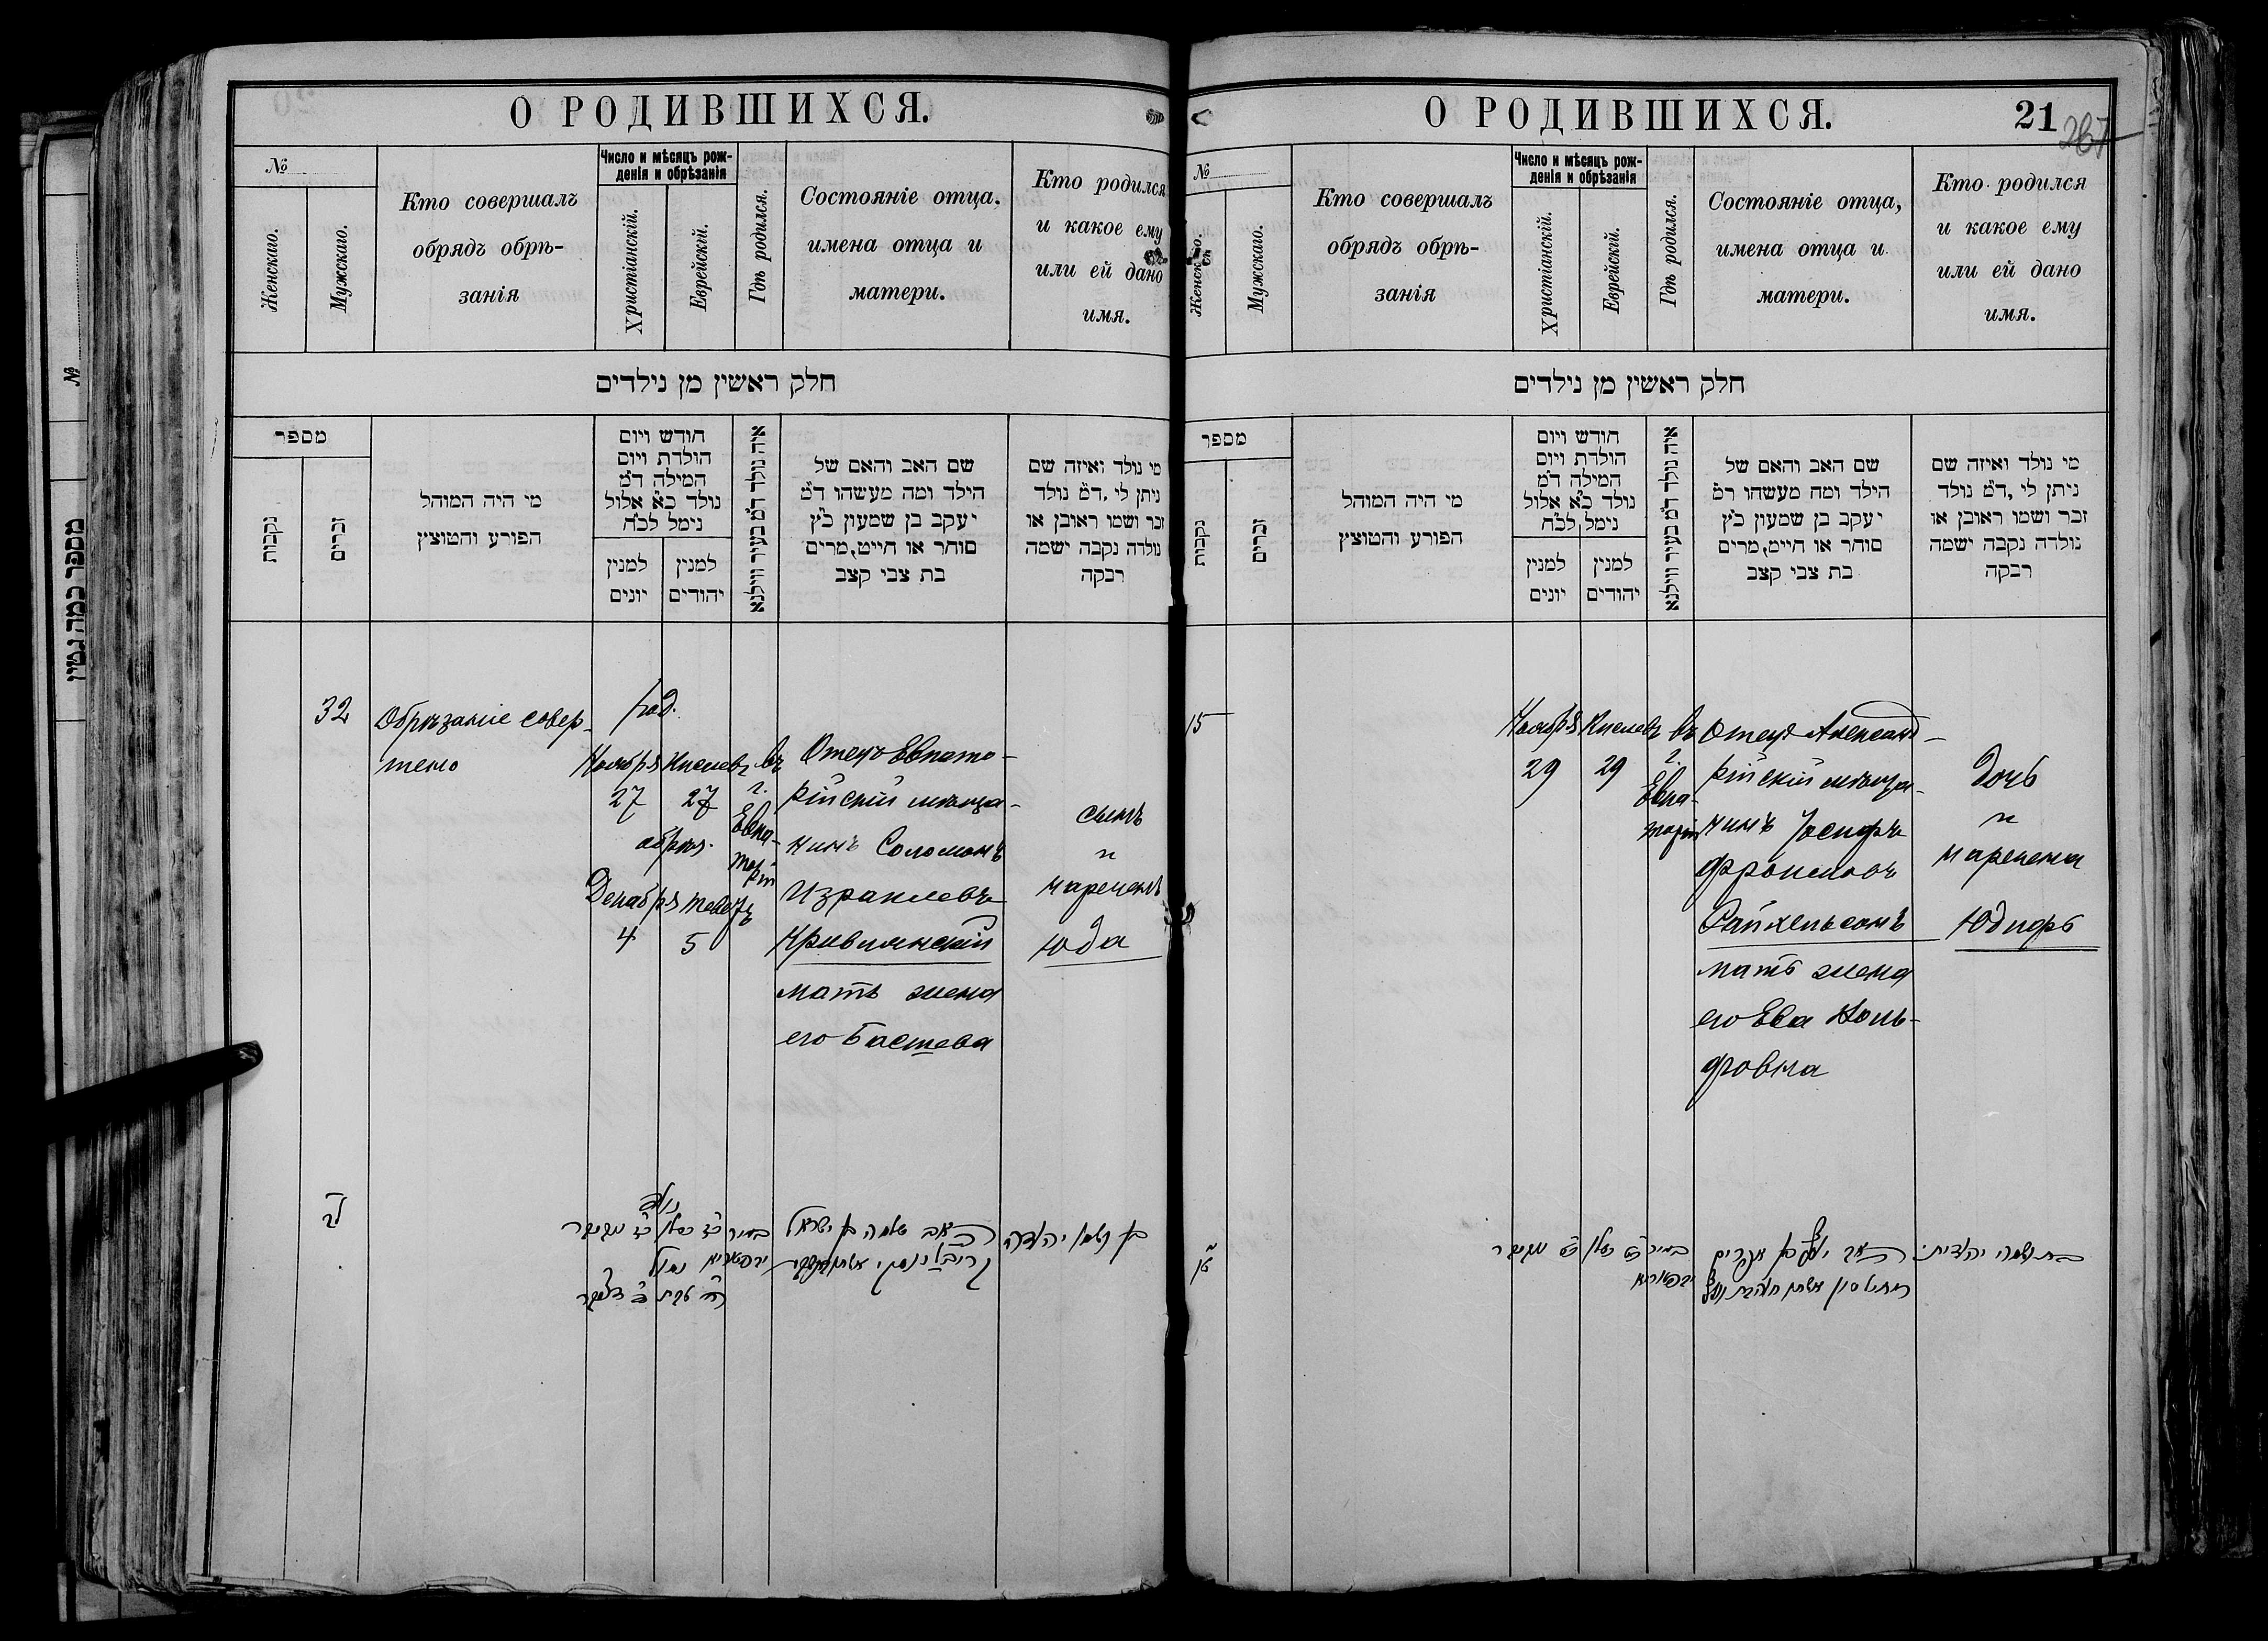 О РОДИВШИХСЯ.
№
Женскаго.
Мужскаго.
Кто совершалъ
обрядъ обрѣ-
занія
Число и мѣсяцъ рож-
денія и обрѣзанія
Христіанскій.
Еврейскій.
Гдѣ родился.
Состояніе отца.
имена отца и
матери.
Кто родился
и какое ему
или ей дано
имя.
חלק ראשין מן נילדים
מספר
נקבות
זכרים
מי היה המוהל
הפורע והטוצץ
חודש ויום
הולדת ויום
המילה ד״מ
נולד כ״א אלול
נימל לכ״ח
למנין
יונים
למנין
יהודים
איה נולד ד״מ בעיר ווילנא
שם האב והאם של
הילד ומה מעשהו ד״מ
יעקב בן שמעון כ״ץ
סוחר או חייט, מרים
בת צבי קצב
מי נולד ואיזה שם
ניתן לי, ד״מ נולד
זכר ושמו ראובן או
נולדה נקבה ישמה
רבקה
32
Обрѣзаніе совер-
шено
род.
Ноября Кислевъ
27 27
обрѣз.
Декабря Тевефъ
4 5
въ
г.
Евпа-
торіи
Отецъ Евпато-
рійскій мѣща-
нинъ Соломонъ
Израилевъ
Кривлянскій
мать жена
его Басшева
сынъ
и
нареченъ
Юда
לב
נולד
כז כסלו כז נויעמבר
בעיר
האב שלמה בן ישראל
בן ושמו יהודה
О РОДИВШИХСЯ.
21
№
Женскаго.
Мужскаго.
Кто совершалъ
обрядъ обрѣ-
занія
Число и мѣсяцъ рож-
денія и обрѣзанія
Христіанскій.
Еврейскій.
Гдѣ родился.
Состояніе отца,
имена отца и
матери.
Кто родился
и какое ему
или ей дано
имя.
חלק ראשין מן נילדים
מספר
נקבות
זכרים
מי היה המוהל
הפורע והטוצץ
חודש ויום
הולדת ויום
המילה ד״מ
נולד כ״א אלול
נימל לכ״ח
למנין
יונים
למנין
יהודים
איה נולד ד״מ בעיר ווילנא
שם האב והאם של
הילד ומה מעשהו רמ
יעקב בן שמעון כ״ץ
סוחר או חייט, מרים
בת צבי קצב
מי נולד ואיזה שם
ניתן לי, ד״מ נולד
זכר ושמו ראובן או
נולדה נקבה ישמה
רבקה
15
Ноября Кислевъ
29 29
въ
г.
Евпа-
торіи
Отецъ Александ-
рійскій мѣща-
нинъ Іосифъ
Фроимовъ
Райхельсонъ
мать жена
его Ева Воль-
фовна
Дочь
и
наречена
Юдифь
טו
כט כסלו
בעיר
האב יוסף בן אפרים
בת ושמה יהודית
№
מספר כמה גטין